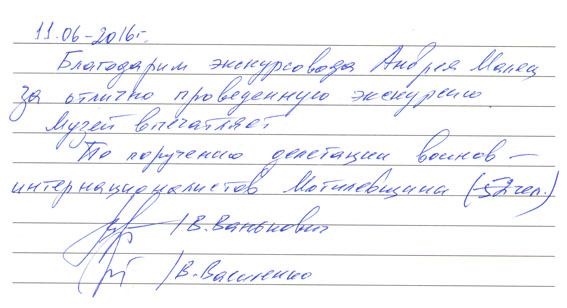 11.06-2016г.
Благодарим экскурсовода Андрея Малец
за отлично проведенную экскурсию
Музей впечатляет
По поручению делегации воинов –
интернационалистов Могилевщины (52 чел.)
/В. Ванькович
/В. Василенко